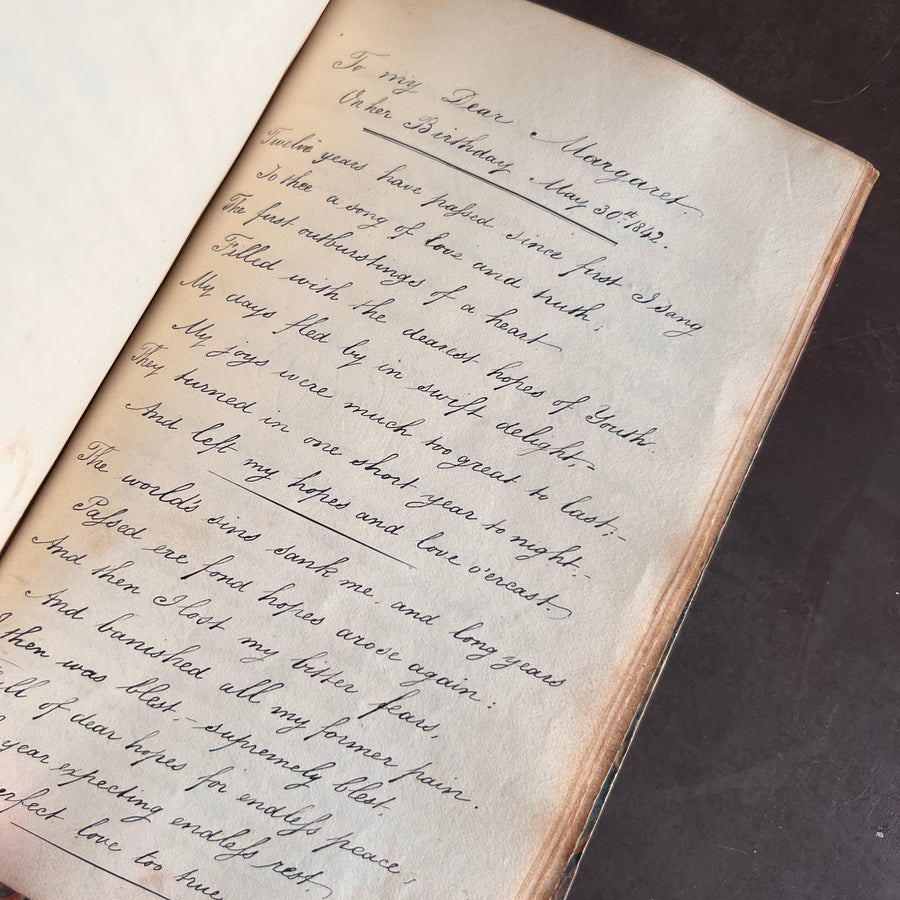 To my Dear Margaret.
On her Birthday May 30th. 1842.
Twelve years have passed since first I sung
To thee a song of love and truth;
The first outburstings of a heart
Filled with the dearest hopes of Youth.
My days fled by in swift delight,-
My joys were much too great to last:-
They turned in one short year to night.-
And left my hopes and love o'ercast.
The world's sins sank me, and long years
Passed ere fond hopes arose again:
And then I lost my bitter fears,
And banished all my former pain.
I then was blest,- supremely blest.
of dear hopes for endless peace;
year expecting endless rest.
love too true